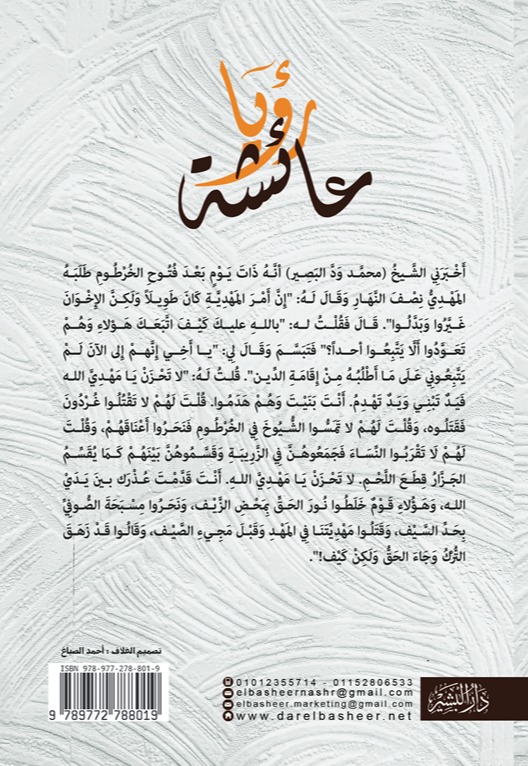 رؤيا
عائشة
أَخْبَرَنِي الشَّيخُ (محمَّد وَدَّ البَصِير) أنَّهُ ذَاتَ يَوْمٍ بَعْدَ فُتُوحِ الخُرْطُومِ طَلَبَهُ
المَهْدِيُّ نِصْفَ النَّهَارِ وَقَالَ لَهُ: "إنَّ أَمْرَ المَهْدِيَّةِ كَانَ طَوِيلاً وَلَكِنَّ الإِخْوَانَ
غَيَّرُوا وَبَدَّلُوا". قَالَ فَقُلْتُ لـه: "باللهِ عليكَ كَيْفَ اتَّبَعَكَ هَؤلاءِ وَهُمْ
تَعَوَّدُوا أَلَّا يَتَّبِعُوا أحداً؟" فَتَبَسَّمَ وَقَالَ لِي: "يـا أَخِي إنَّهمْ إلى الآنَ لَمْ
يَتَّبِعُونِي عَلَى مَا أَطْلُبُهُ مِنْ إقَامَةِ الدِّين". قُلتُ لَهُ: "لا تَحْزَنْ يَا مَهْدِيَّ الله
فَيَدٌ تَبْنِي وَيَدٌ تَهْدِمُ. أَنْتَ بَنَيْتَ وَهُمْ هَدَمُوا. قُلْتَ لَهُمْ لا تَقْتُلُوا غُرْدُونَ
فَقَتَلُوه، وَقُلْتَ لَهُمْ لا تَمَسُّوا الشُّيُوخَ فِي الخُرْطُومِ فَنَحَرُوا أَعْنَاقَهُمْ، وَقُلْتَ
لَهُمْ لَا تَقْرَبُوا النِّسَاءَ فَجَمَعُوهُنَّ فِي الزَّرِيبَةِ وَقَسَّمُوهُنَّ بَيْنَهُمْ كَمَا يُقَسِّمُ
الجَزَّارُ قِطَعَ اللَّحْم. لا تَحْزَنْ يَا مَهْدِيَّ اللهِ. أَنْتَ قَدَّمْتَ عُذْرَكَ بـينَ يَدَيُ
الله، وَهَؤُلاءِ قَوْمٌ خَلَطُوا نُورَ الحَقِّ بِمَحْضِ الزَّيْف، وَنَحَرُوا مِسْبَحَةَ الصُّوفِيِّ
بِحَدِّ السَّيْف، وَقَتَلُوا مَهْدِيَّتَنَا فِي المَهْدِ وَقَبْلَ مَجِيءِ الصَّيْف، وَقَالُوا قَدْ زَهَقَ
التُّرْكُ وَجَاءَ الحَقُّ وَلَكِنْ كَيْف!".
تصميم الغلاف : أحمد الصباغ
ISBN 978-977-278-801-9
9 789772 788019
01012355714 - 01152806533
elbasheernashr@gmail.com
elbasheer.marketing@gmail.com
www.darelbasheer.net
دار البشير